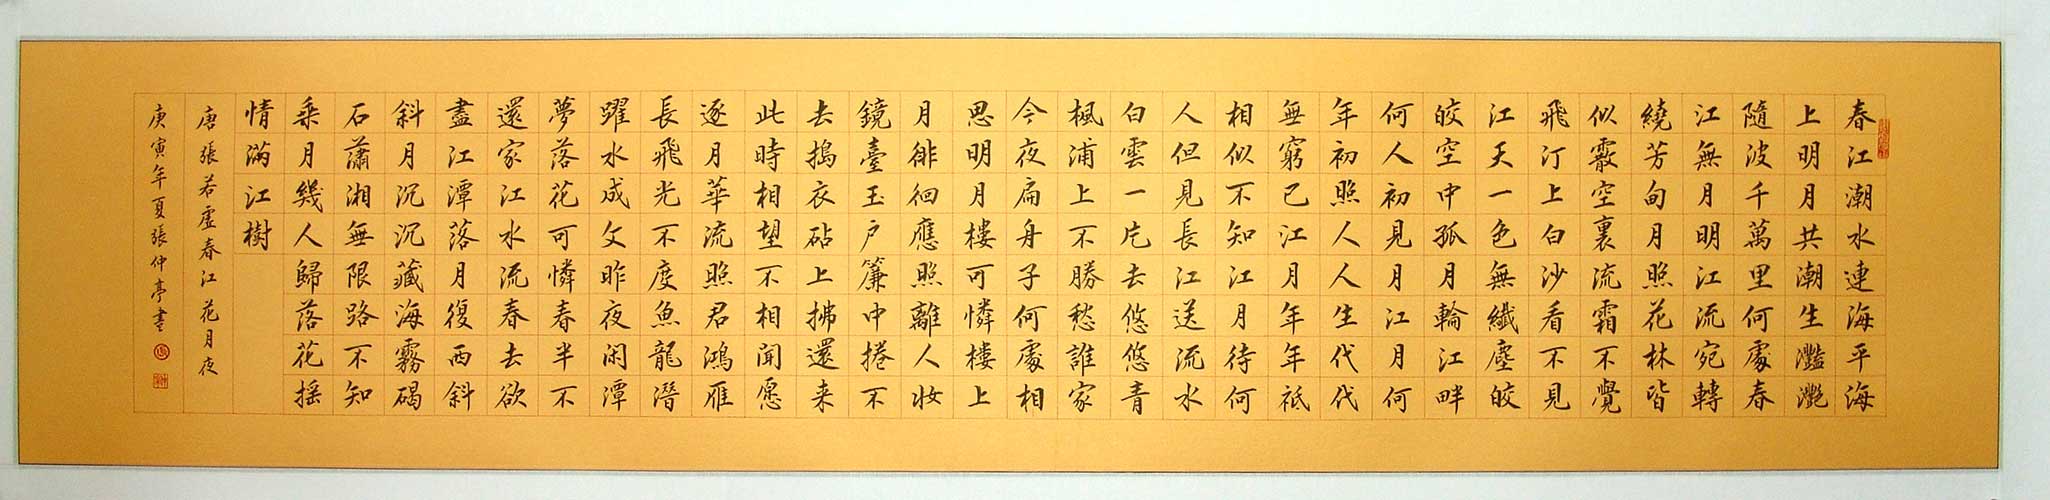 春江潮水連海平海
上明月共潮生灩灔
隨波千萬里何處春
江無月明江流宛轉
繞芳甸月照花林皆
似霰空裏流霜不覺
飛汀上白沙看不見
江天一色無纖塵皎
皎空中孤月輪江畔
何人初見月江月何
年初照人人生代代
無窮已江月年年祗
相似不知江月待何
人但見長江送流水
白雲一片去悠悠青
楓浦上不勝愁誰家
今夜扁舟子何處相
思明月樓可憐樓上
月徘徊應照離人妝
鏡臺玉户簾中捲不
去搗衣砧上拂還来
此時相望不相聞愿
逐月華流照君鴻雁
長飛光不度魚龍潛
躍水成文昨夜闲潭
夢落花可憐春半不
還家江水流春去欲
盡江潭落月復西斜
斜月沉沉藏海霧碣
石瀟湘無限路不知
乘月幾人歸落花摇
情滿江樹
唐張若虛春江花月夜
庚寅年夏張仲亭書